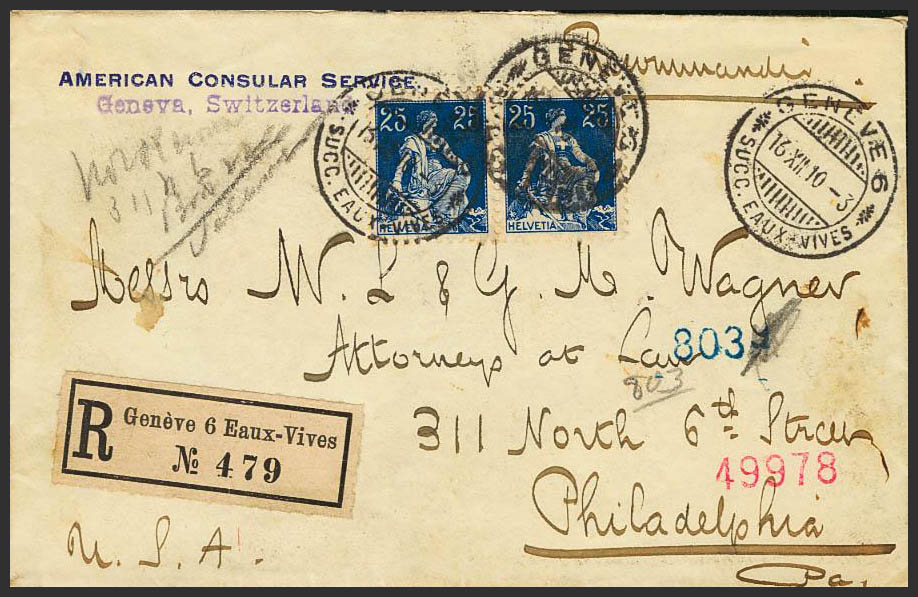 Recommandée
AMERICAN CONSULAR SERVICE
Geneva, Switzerland
311 N
25 25
HELVETIA
25 25
HELVETIA
GENÈVE 6
SUCC. EAUX-VIVES
GENÈVE 6
GENÈVE 6
16.XII.10-3
SUCC. EAUX-VIVES
Messrs W. L & G. M. Wagner
Attorneys at Law
803
803
311 North 6th Street
49978
Philadelphia
Pa.
R
Genève 6 Eaux-Vives
№ 479
U. S. A.